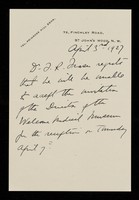 72, FINCHLEY ROAD,
ST JOHN'S WOOD, N.W.
April 3rd 1927
Dr J. R. Fraser regrets
that he will be unable
to accept the invitation
of the Director of the
Wellcome Medical Museum
for the reception on Thursday
April 7th